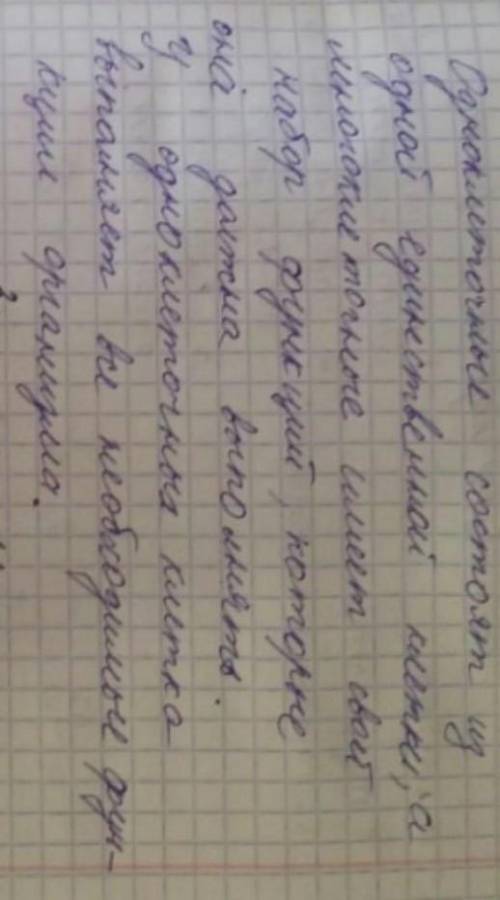 Одноклеточные состоят из
одной единственной клетки, а
многоклеточные имеет свой
набор функций, которые
она должна выполнять.
У одноклеточных клетка
выполняет все необходимые фун-
кции организма.